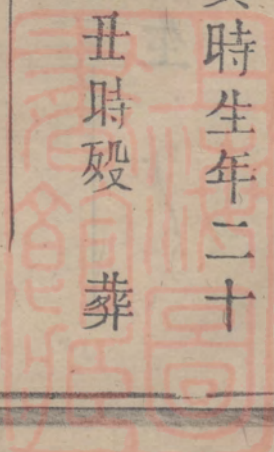 時生年二十
丑時殁 葬